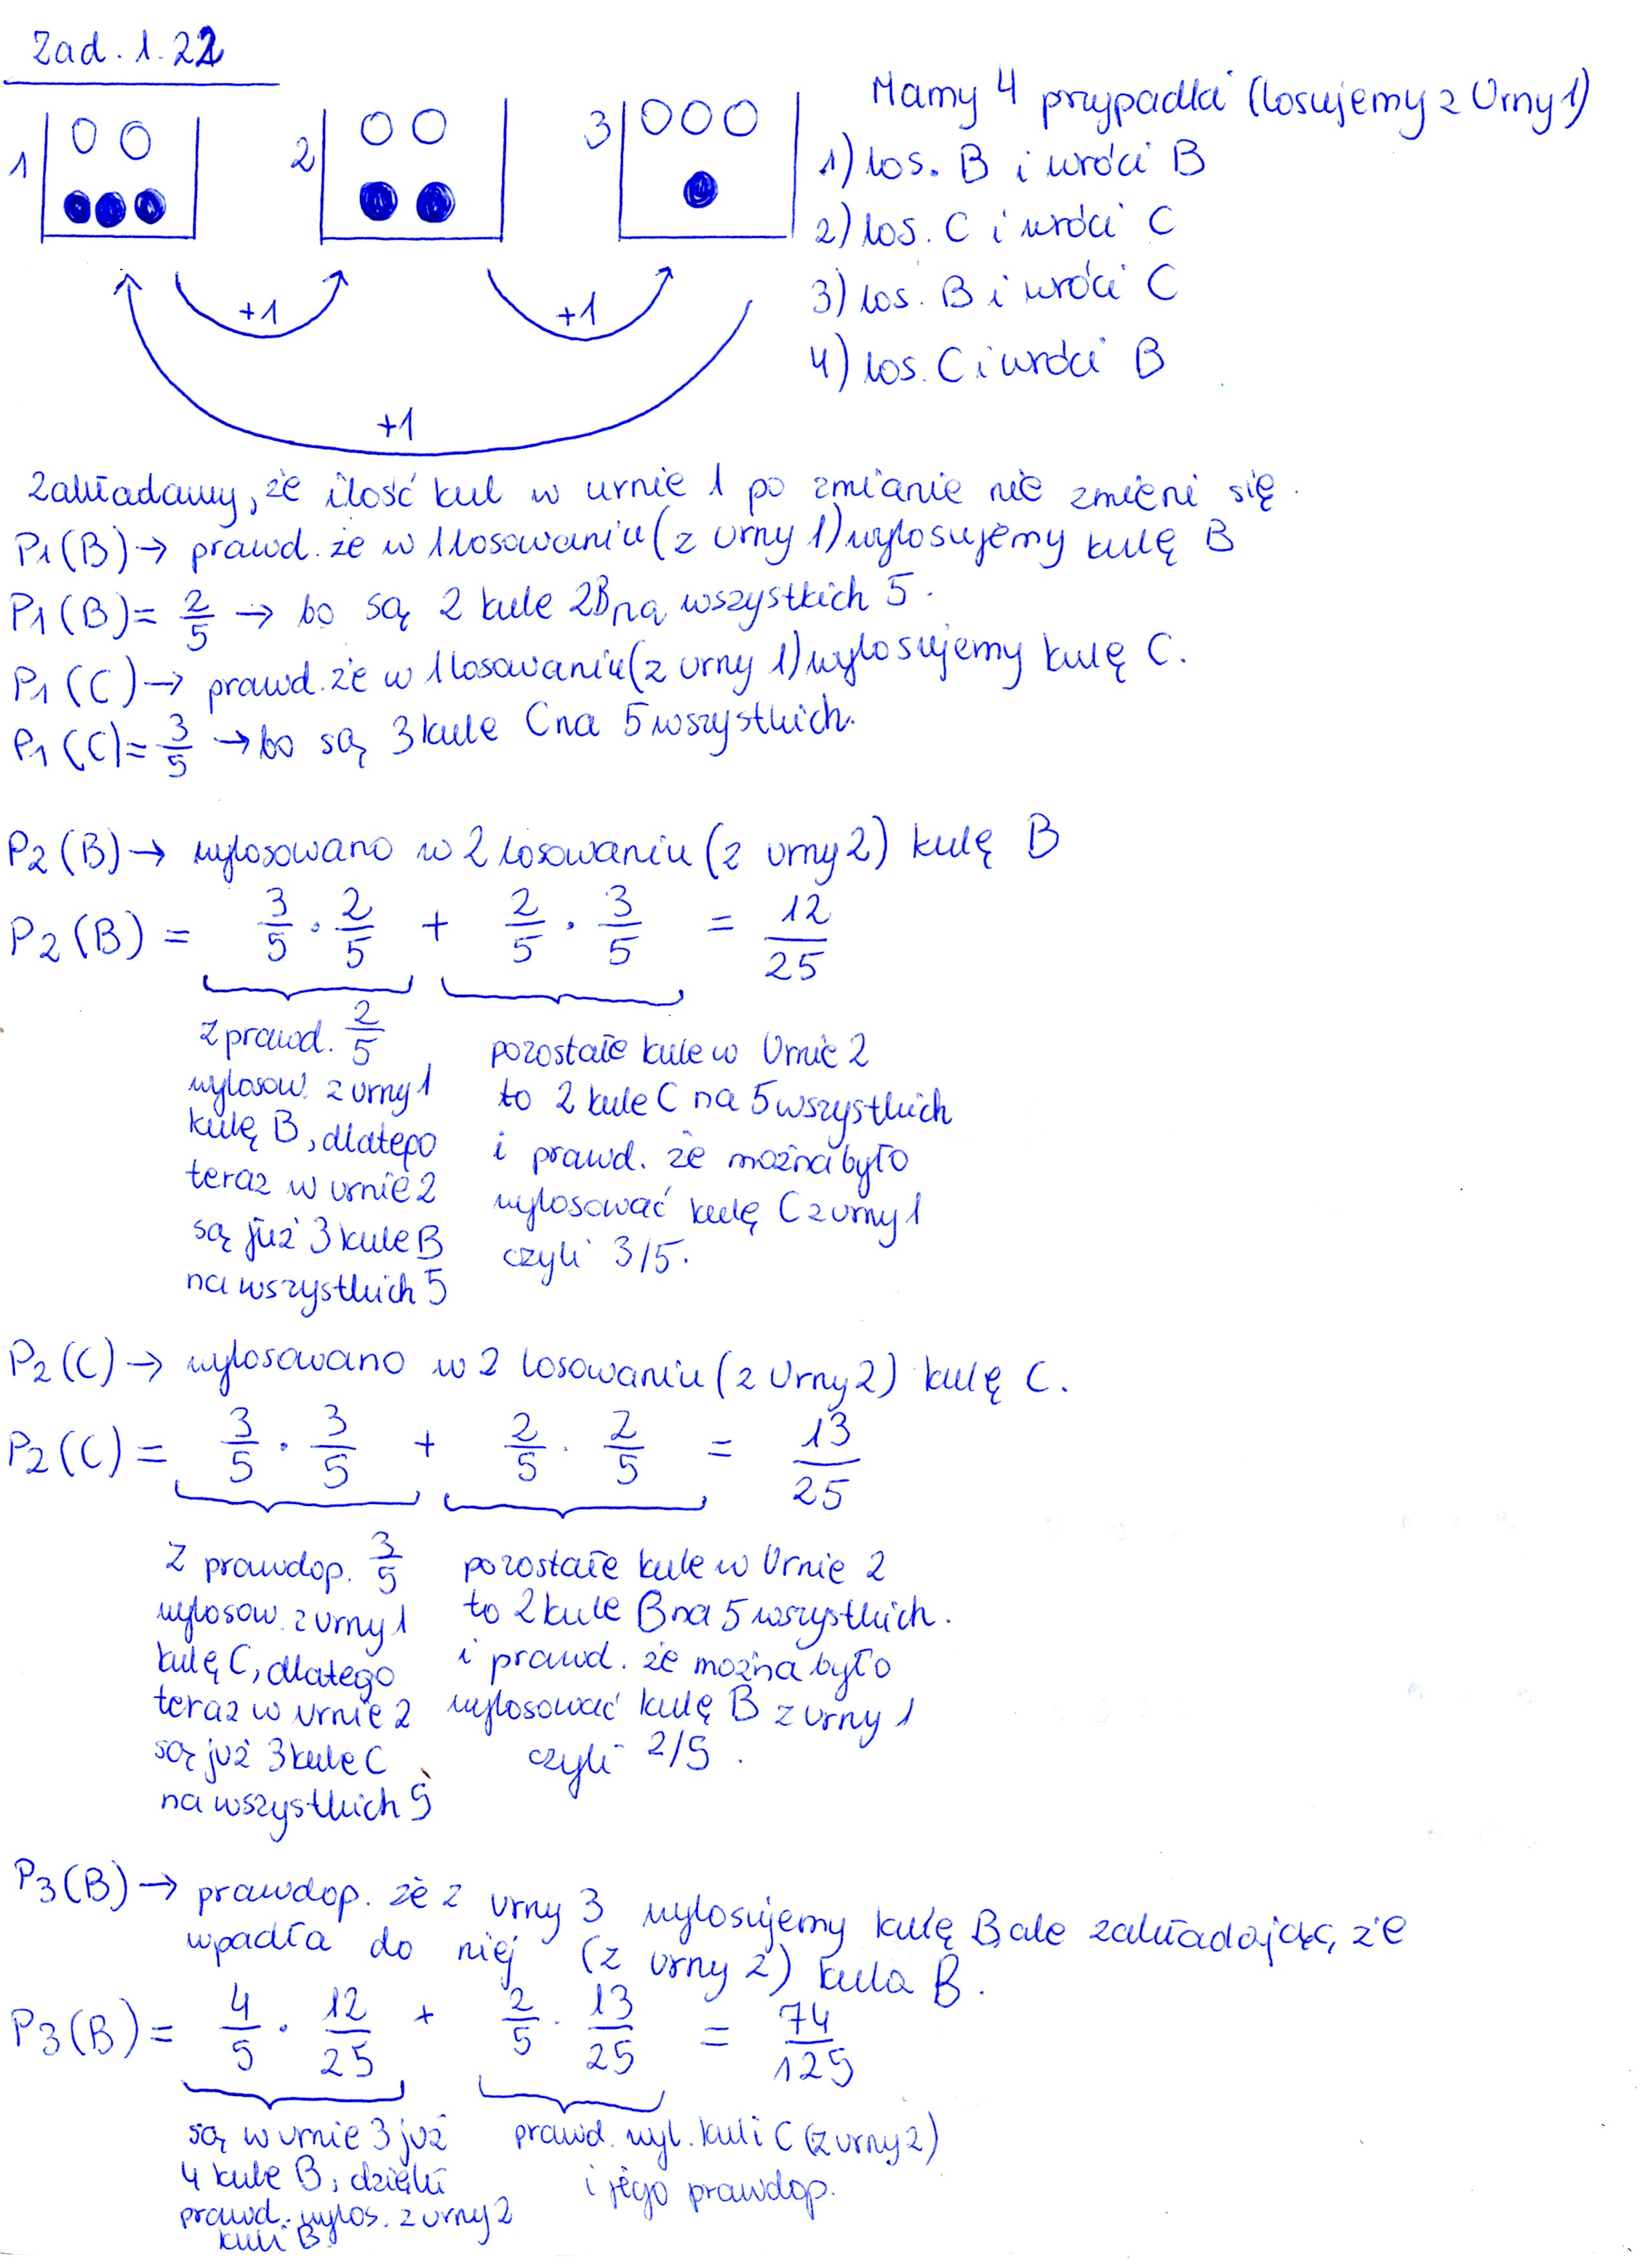 Zad. 1.22
1 2 3
+1 +1
+1
Mamy 4 przypadki (losujemy z Urny 1)
1) los. B i wróci B
2) los. C i wróci C
3) los. B i wróci C
4) los. C i wróci B
Zakładamy, że ilość kul w urnie 1 po zmianie nie zmieni się.
P1(B) → prawd. że w 1 losowaniu (z urny 1) wylosujemy kulę B
P1(B) = 2/5 → bo są 2 kule 2B na wszystkich 5.
P1(C) → prawd. że w 1 losowaniu (z urny 1) wylosujemy kulę C.
P1(C) = 3/5 → bo są 3 kule C na 5 wszystkich.
P2(B) → wylosowano w 2 losowaniu (z urny 2) kulę B
P2(B) = 3/5 · 2/5 + 2/5 · 3/5 = 12/25
z prawd. 2/5
wylosow. z urny 1
kulę B, dlatego
teraz w urnie 2
są już 3 kule B
na wszystkich 5
pozostałe kule w Urnie 2
to 2 kule C na 5 wszystkich
i prawd. że można było
wylosować kulę C z urny 1
czyli 3/5.
P2(C) → wylosowano w 2 losowaniu (z Urny 2) kulę C.
P2(C) = 3/5 · 3/5 + 2/5 · 2/5 = 13/25
Z prawdop. 3/5
wylosow. z urny 1
kulę C, dlatego
teraz w urnie 2
są już 3 kule C
na wszystkich 5
pozostałe kule w Urnie 2
to 2 kule B na 5 wszystkich.
i prawd. że można było
wylosować kulę B z urny 1
czyli 2/5.
P3(B) → prawdop. że z urny 3 wylosujemy kulę B, ale zakładając, że
wpadła do niej (z urny 2) kula B.
P3(B) = 4/5 · 12/25 + 2/5 · 13/25 = 74/125
są w urnie 3 już
4 kule B, dzięki
prawd. wylos. z urny 2
kuli B.
prawd. wyl. kuli C (z urny 2)
i jego prawdop.